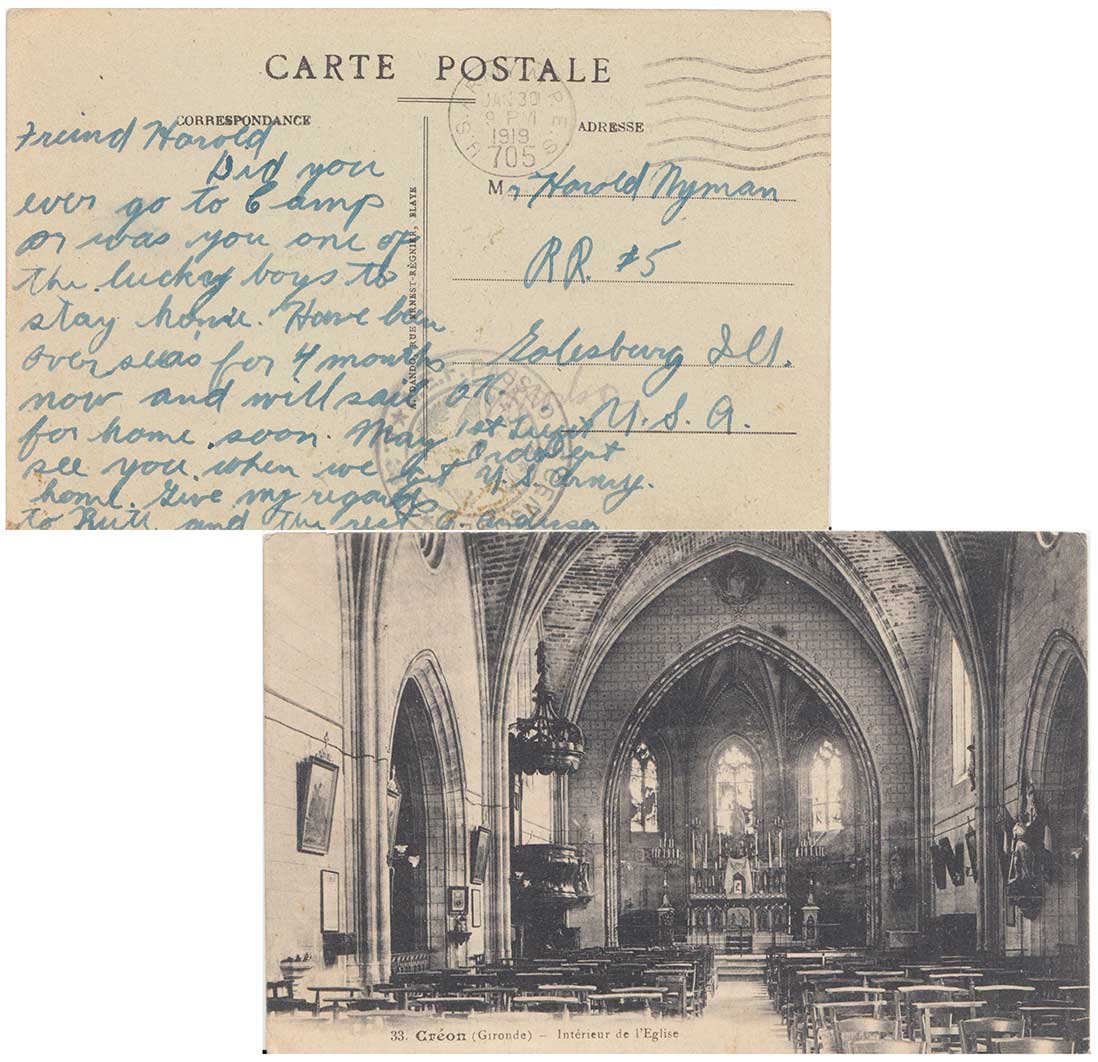 CARTE POSTALE
CORRESPONDANCE
ADRESSE
JAN 30
9 PM
1919
705
Freind Harold
Did you
ever go to Camp
or was you one of
the lucky boys to
stay home. Have been
over seas for 4 months
now and will sail
for home soon. May
see you when we get
home. Give my regards
to Ruth and the rest
1st Lieut
Ord Dept
U S Army.
A. DANDO, RUE ERNEST-RÈGNIER, BLAYE
Mr Harold Nyman
RR. #5
Galesburg Ill.
U. S. A.
33. Créon (Gironde) – Intérieur de l'Eglise